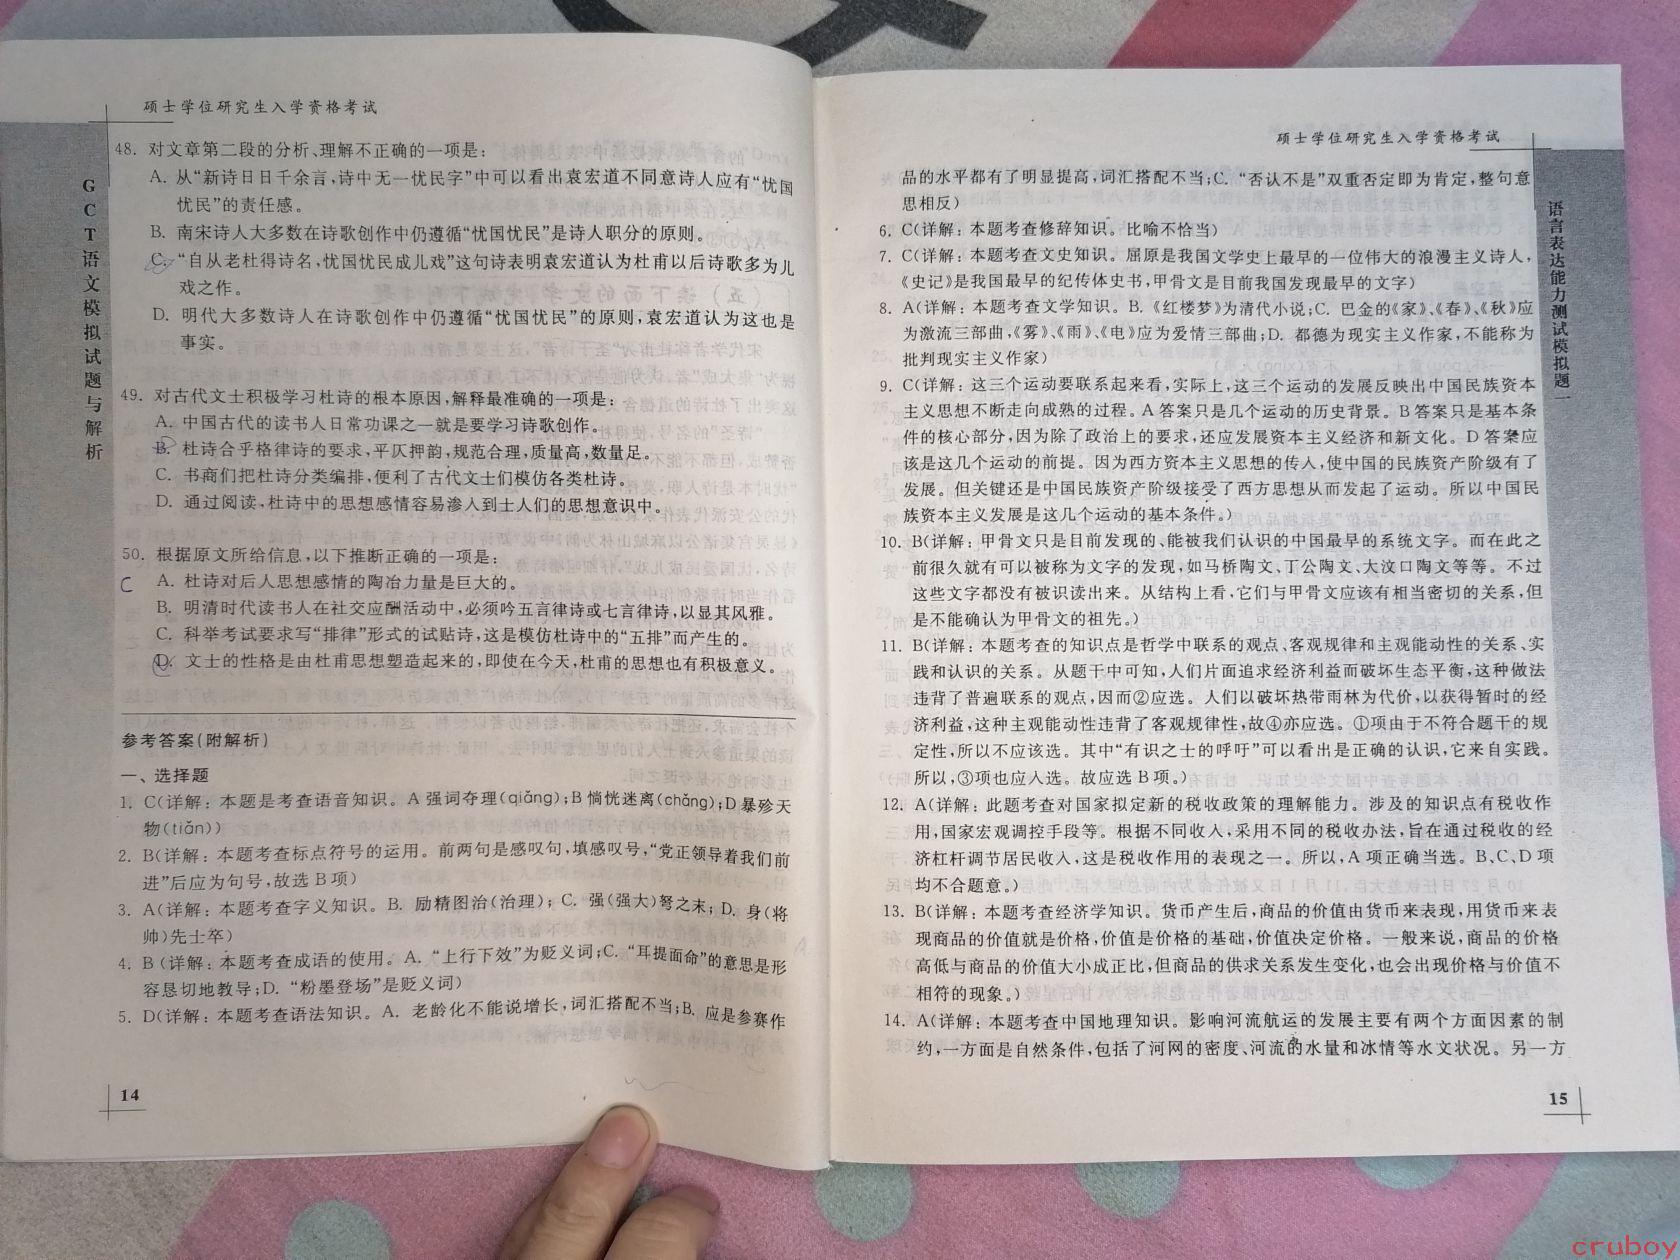 硕士学位研究生入学资格考试
GCT语文模拟试题与解析
48. 对文章第二段的分析、理解不正确的一项是:
A. 从“新诗日日千余言,诗中无一忧民字”中可以看出袁宏道不同意诗人应有“忧国
忧民”的责任感。
B. 南宋诗人大多数在诗歌创作中仍遵循“忧国忧民”是诗人职分的原则。
C. “自从老杜得诗名,忧国忧民成儿戏”这句诗表明袁宏道认为杜甫以后诗歌多为儿
戏之作。
D. 明代大多数诗人在诗歌创作中仍遵循“忧国忧民”的原则,袁宏道认为这也是
事实。
49. 对古代文士积极学习杜诗的根本原因,解释最准确的一项是:
A. 中国古代的读书人日常功课之一就是要学习诗歌创作。
B. 杜诗合乎格律诗的要求,平仄押韵,规范合理,质量高,数量足。
C. 书商们把杜诗分类编排,便利了古代文士们模仿各类杜诗。
D. 通过阅读,杜诗中的思想感情容易渗入到士人们的思想意识中。
50. 根据原文所给信息,以下推断正确的一项是:
C
A. 杜诗对后人思想感情的陶冶力量是巨大的。
B. 明清时代读书人在社交应酬活动中,必须吟五言律诗或七言律诗,以显其风雅。
C. 科举考试要求写“排律”形式的试贴诗,这是模仿杜诗中的“五排”而产生的。
D. 文士的性格是由杜甫思想塑造起来的,即使在今天,杜甫的思想也有积极意义。
参考答案(附解析)
一、选择题
1. C(详解:本题是考查语音知识。A 强词夺理(qiǎng);B 惝恍迷离(chǎng);D 暴殄天
物(tiǎn))
2. B(详解:本题考查标点符号的运用。前两句是感叹句,填感叹号,“党正领导着我们前
进”后应为句号,故选 B 项)
3. A(详解:本题考查字义知识。B. 励精图治(治理);C. 强(强大)弩之末;D. 身(将
帅)先士卒)
4. B(详解:本题考查成语的使用。A. “上行下效”为贬义词;C. “耳提面命”的意思是形
容恳切地教导;D. “粉墨登场”是贬义词)
5. D(详解:本题考查语法知识。A. 老龄化不能说增长,词汇搭配不当;B. 应是参赛作
14
硕士学位研究生入学资格考试
语言表达能力测试模拟题一
品的水平都有了明显提高,词汇搭配不当;C. “否认不是”双重否定即为肯定,整句意
思相反)
6. C(详解:本题考查修辞知识。比喻不恰当)
7. C(详解:本题考查文史知识。屈原是我国文学史上最早的一位伟大的浪漫主义诗人,
《史记》是我国最早的纪传体史书,甲骨文是目前我国发现最早的文字)
8. A(详解:本题考查文学知识。B.《红楼梦》为清代小说;C. 巴金的《家》、《春》、《秋》应
为激流三部曲,《雾》、《雨》、《电》应为爱情三部曲;D. 都德为现实主义作家,不能称为
批判现实主义作家)
9. C(详解:这三个运动要联系起来看,实际上,这三个运动的发展反映出中国民族资本
主义思想不断走向成熟的过程。A 答案只是几个运动的历史背景。B 答案只是基本条
件的核心部分,因为除了政治上的要求,还应发展资本主义经济和新文化。D 答案应
该是这几个运动的前提。因为西方资本主义思想的传人,使中国的民族资产阶级有了
发展。但关键还是中国民族资产阶级接受了西方思想从而发起了运动。所以中国民
族资本主义发展是这几个运动的基本条件。)
10. B(详解:甲骨文只是目前发现的、能被我们认识的中国最早的系统文字。而在此之
前很久就有可以被称为文字的发现,如马桥陶文、丁公陶文、大汶口陶文等等。不过
这些文字都没有被识读出来。从结构上看,它们与甲骨文应该有相当密切的关系,但
是不能确认为甲骨文的祖先。)
11. B(详解:本题考查的知识点是哲学中联系的观点、客观规律和主观能动性的关系、实
践和认识的关系。从题干中可知,人们片面追求经济利益而破坏生态平衡,这种做法
违背了普遍联系的观点,因而②应选。人们以破坏热带雨林为代价,以获得暂时的经
济利益,这种主观能动性违背了客观规律性,故④亦应选。①项由于不符合题干的规
定性,所以不应该选。其中“有识之士的呼吁”可以看出是正确的认识,它来自实践。
所以,③项也应人选。故应选 B 项。)
12. A(详解:此题考查对国家拟定新的税收政策的理解能力。涉及的知识点有税收作
用,国家宏观调控手段等。根据不同收入,采用不同的税收办法,旨在通过税收的经
济杠杆调节居民收入,这是税收作用的表现之一。所以,A 项正确当选。B、C、D 项
均不合题意。)
13. B(详解:本题考查经济学知识。货币产生后,商品的价值由货币来表现,用货币来表
现商品的价值就是价格,价值是价格的基础,价值决定价格。一般来说,商品的价格
高低与商品的价值大小成正比,但商品的供求关系发生变化,也会出现价格与价值不
相符的现象。)
14. A(详解:本题考查中国地理知识。影响河流航运的发展主要有两个方面因素的制
约,一方面是自然条件,包括了河网的密度、河流的水量和冰情等水文状况。另一方
15
cruboy